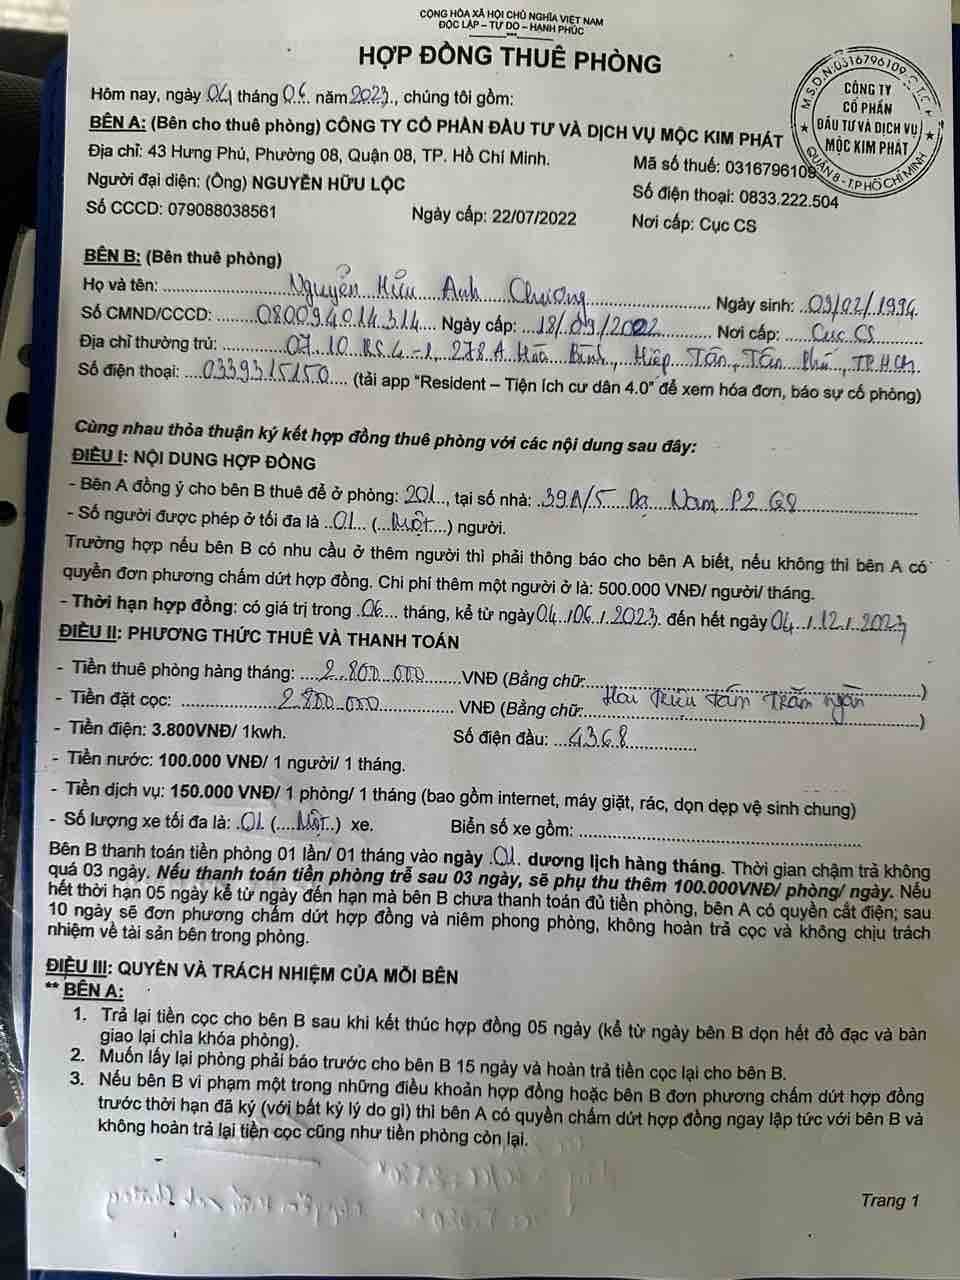 CỘNG HÒA XÃ HỘI CHỦ NGHĨA VIỆT NAM
ĐỘC LẬP – TỰ DO – HẠNH PHÚC
HỢP ĐỒNG THUÊ PHÒNG
Hôm nay, ngày 04 tháng 06 năm 2023, chúng tôi gồm:
BÊN A: (Bên cho thuê phòng) CÔNG TY CỔ PHẦN ĐẦU TƯ VÀ DỊCH VỤ MỘC KIM PHÁT
Địa chỉ: 43 Hưng Phú, Phường 08, Quận 08, TP. Hồ Chí Minh. Mã số thuế: 0316796109
Người đại diện: (Ông) NGUYỄN HỮU LỘC Số điện thoại: 0833.222.504
Số CCCD: 079088038561 Ngày cấp: 22/07/2022 Nơi cấp: Cục CS
M.S.D.N:0316796109-C.T.C.P
CÔNG TY
CỔ PHẦN
ĐẦU TƯ VÀ DỊCH VỤ
MỘC KIM PHÁT
QUẬN 8 - T.P HỒ CHÍ MINH
BÊN B: (Bên thuê phòng)
Họ và tên: Nguyễn Hữu Anh Chương Ngày sinh: 09/02/1994
Số CMND/CCCD: 080094014314 Ngày cấp: 18/09/2022 Nơi cấp: Cục CS
Địa chỉ thường trú: 07.10 RS4-1, 278A Hoà Bình, Hiệp Tân, Tân Phú, TP.HCM
Số điện thoại: 0339315150 (tải app “Resident – Tiện ích cư dân 4.0” để xem hóa đơn, báo sự cố phòng)
Cùng nhau thỏa thuận ký kết hợp đồng thuê phòng với các nội dung sau đây:
ĐIỀU I: NỘI DUNG HỢP ĐỒNG
- Bên A đồng ý cho bên B thuê để ở phòng: 201, tại số nhà: 39A/5 Dạ Nam P2 Q8
- Số người được phép ở tối đa là 01 (Một) người.
Trường hợp nếu bên B có nhu cầu ở thêm người thì phải thông báo cho bên A biết, nếu không thì bên A có
quyền đơn phương chấm dứt hợp đồng. Chi phí thêm một người ở là: 500.000 VNĐ/ người/ tháng.
- Thời hạn hợp đồng: có giá trị trong 06 tháng, kể từ ngày 04/06/2023 đến hết ngày 04/12/2023
ĐIỀU II: PHƯƠNG THỨC THUÊ VÀ THANH TOÁN
- Tiền thuê phòng hàng tháng: 2.800.000 VNĐ (Bằng chữ: )
- Tiền đặt cọc: 2.800.000 VNĐ (Bằng chữ: Hai triệu tám trăm ngàn )
- Tiền điện: 3.800VNĐ/ 1kwh. Số điện đầu: 4368
- Tiền nước: 100.000 VNĐ/ 1 người/ 1 tháng.
- Tiền dịch vụ: 150.000 VNĐ/ 1 phòng/ 1 tháng (bao gồm internet, máy giặt, rác, dọn dẹp vệ sinh chung)
- Số lượng xe tối đa là: 01 (Một) xe. Biển số xe gồm:
Bên B thanh toán tiền phòng 01 lần/ 01 tháng vào ngày 01 dương lịch hàng tháng. Thời gian chậm trả không
quá 03 ngày. Nếu thanh toán tiền phòng trễ sau 03 ngày, sẽ phụ thu thêm 100.000VNĐ/ phòng/ ngày. Nếu
hết thời hạn 05 ngày kể từ ngày đến hạn mà bên B chưa thanh toán đủ tiền phòng, bên A có quyền cắt điện; sau
10 ngày sẽ đơn phương chấm dứt hợp đồng và niêm phong phòng, không hoàn trả cọc và không chịu trách
nhiệm về tài sản bên trong phòng.
ĐIỀU III: QUYỀN VÀ TRÁCH NHIỆM CỦA MỖI BÊN
** BÊN A:
1. Trả lại tiền cọc cho bên B sau khi kết thúc hợp đồng 05 ngày (kể từ ngày bên B dọn hết đồ đạc và bàn
giao lại chìa khóa phòng).
2. Muốn lấy lại phòng phải báo trước cho bên B 15 ngày và hoàn trả tiền cọc lại cho bên B.
3. Nếu bên B vi phạm một trong những điều khoản hợp đồng hoặc bên B đơn phương chấm dứt hợp đồng
trước thời hạn đã ký (với bất kỳ lý do gì) thì bên A có quyền chấm dứt hợp đồng ngay lập tức với bên B và
không hoàn trả lại tiền cọc cũng như tiền phòng còn lại.
Trang 1